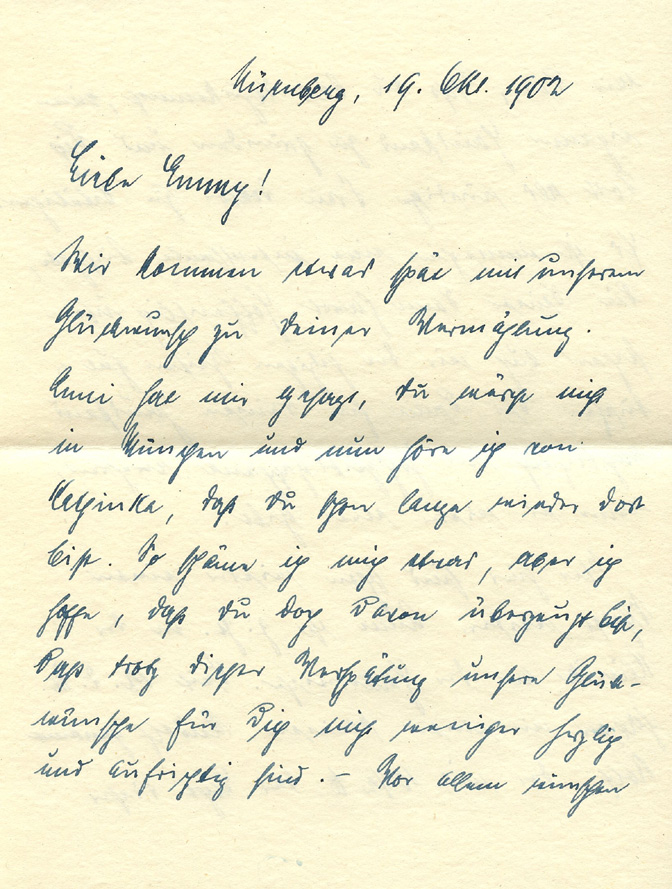 Nürnberg, 19. Okt. 1902
Liebe Emmy!
Wir kommen etwas spät mit unserem
Glückwunsch zu deiner Vermählung.
Anni hat mir gesagt, du wärst nicht
in München und nun höre ich von
daß du schon lange wieder dort
bist. So schäme ich mich etwas, aber ich
hoffe, daß du doch davon überzeugt bist,
daß trotz dieser Verspätung unsere Glück-
wünsche für Dich nicht weniger herzlich
und aufrichtig sind. – Vor allem wünschen